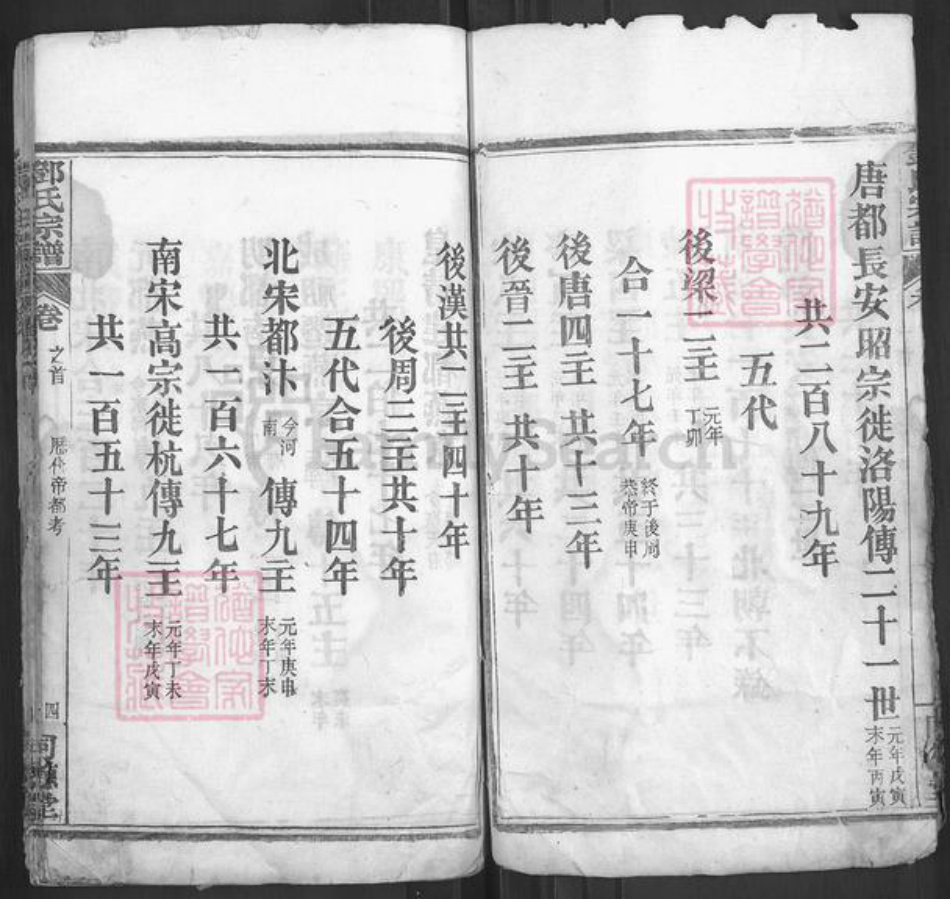 唐都長安昭宗徙洛陽傳二十一世 元年戊寅 末年丙寅
共二百八十九年
五代
後梁二主 元年丁卯
合一十七年 終于後周恭帝庚申
後唐四主 共十三年
後晉二主 共十年
後漢共二主四十年
後周三主共十年
五代合五十四年
北宋都汴 今河南 傳九主 元年庚申 末年丁未
共一百六十七年
南宋高宗徙杭傳九主 元年丁未 末年戊寅
共一百五十三年
鄧氏宗譜
卷之首
歷代帝都考
四
FamilySearch